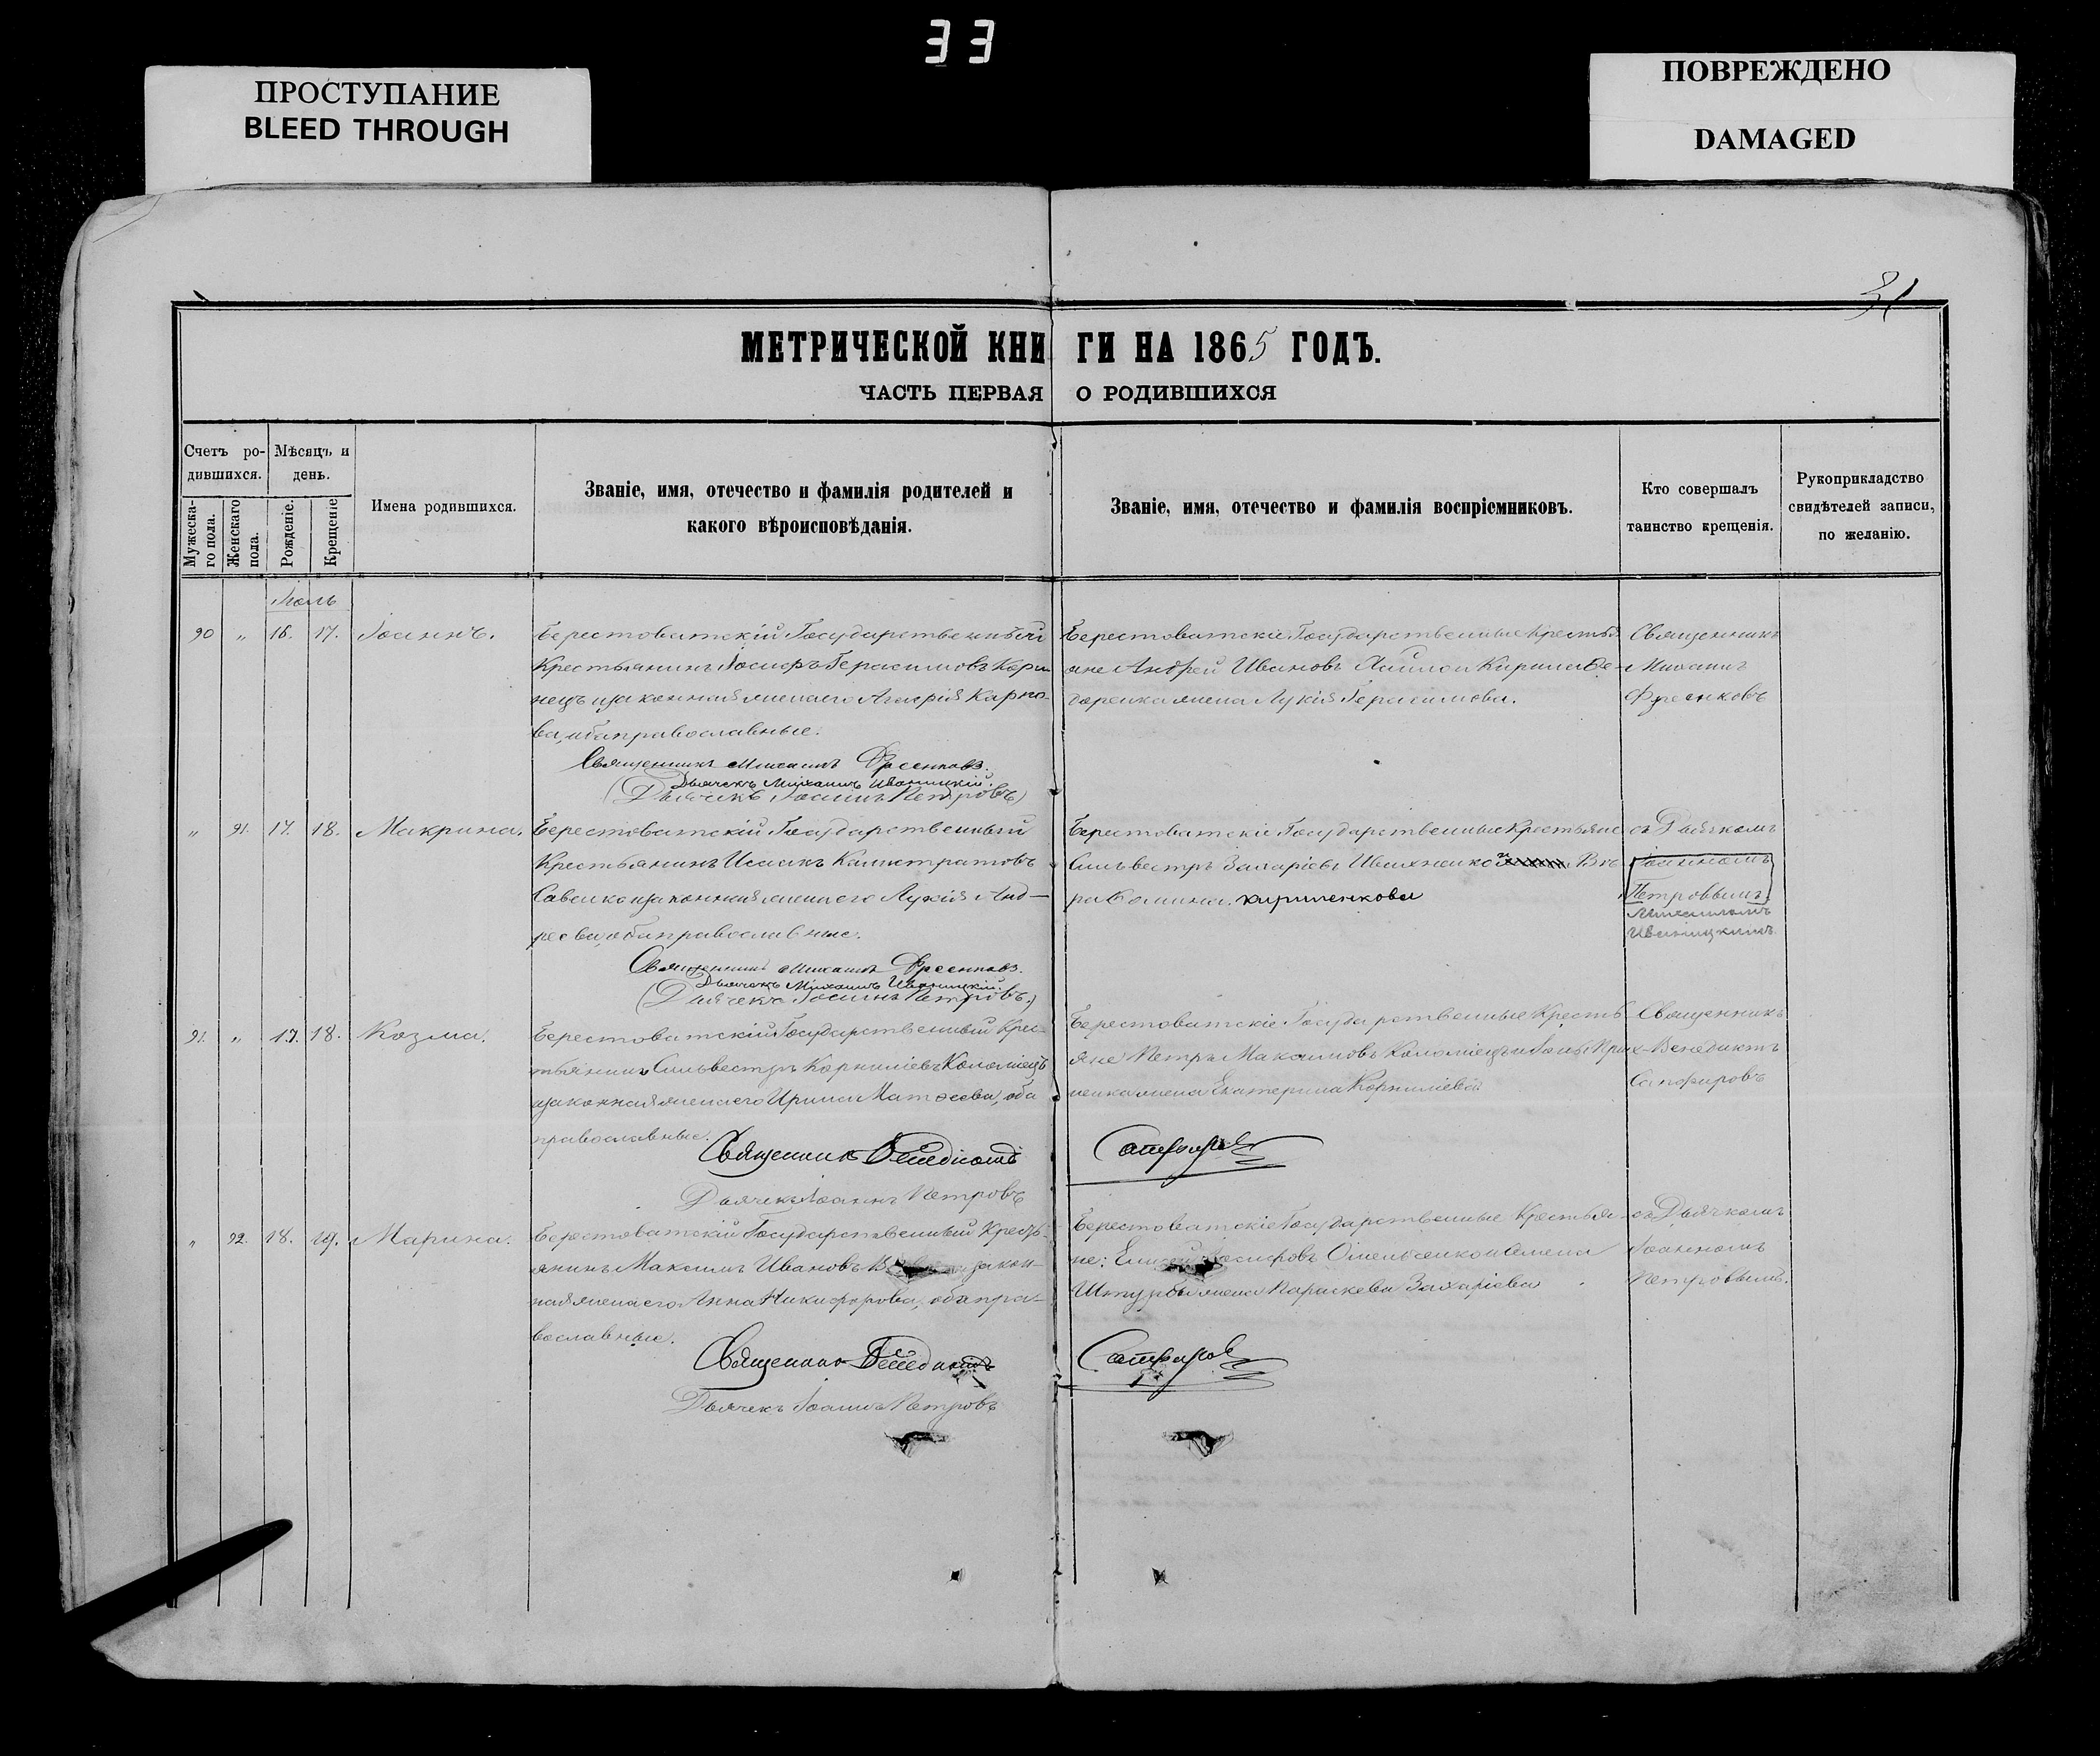 33
ПРОСТУПАНИЕ
BLEED THROUGH
ПОВРЕЖДЕНО
DAMAGED
31
МЕТРИЧЕСКОЙ КНИГИ НА 1865 ГОДЪ.
ЧАСТЬ ПЕРВАЯ О РОДИВШИХСЯ
Счетъ родившихся.
Мужескаго пола.
Женскаго пола.
Мѣсяцъ и день.
Рожденіе.
Крещеніе
Имена родившихся.
Званіе, имя, отечество и фамилія родителей и
какого вѣроисповѣданія.
Званіе, имя, отечество и фамилія воспріемниковъ.
Кто совершалъ
таинство крещенія.
Рукоприкладство
свидѣтелей записи,
по желанію.
Іюль
90 " 16. 17. Іоаннъ.
Берестоватскій Государственный
Крестьянинъ Іосифъ Герасимовъ
и законная жена его Карпо-
ва, оба православные.
Священникъ Михаилъ
Дьячекъ Михаилъ Иваницкій.
(Дьячекъ Іоаннъ Петровъ)
Берестоватскіе Государственные Крестья
не Андрей Ивановъ и Кирила Ѳе-
доренка жена Лукія Герасимова.
Священникъ
Михаилъ
" 91. 17. 18. Макрина.
Берестоватскій Государственный
Крестьянинъ Исаакъ Калистратовъ
Савенко и законная жена его Лукія Анд-
реева, оба православные.
Священникъ Михаилъ
Дьячекъ Михаилъ Иваницкій.
(Дьячекъ Іоаннъ Петровъ.)
Берестоватскіе Государственные Крестьяне
Сильвестръ Захаріевъ Ивахненко и
Ѳомина. кириленкова
съ Дьячкомъ
Іоанномъ
Петровымъ
Михаиломъ
Иваницкимъ
91. " 17. 18. Козма.
Берестоватскій Государственный Крес-
тьянинъ Сильвестръ Корниліевъ Коломіецъ
и законная жена его Ирина Матѳеева, оба
православные.
Священникъ Венедиктъ Сапфировъ
Дьячекъ Іоаннъ Петровъ
Берестоватскіе Государственные Кресть
яне Петръ Максимовъ Коломіецъ и
жена Екатерина Корниліева
Священникъ
Венедиктъ
Сапфировъ
" 92. 18. 19. Марина.
Берестоватскій Государственный Кресть-
янинъ Максимъ Ивановъ и закон-
ная жена его Анна Никифорова, оба пра-
вославные.
Священникъ Венедиктъ Сапфировъ
Дьячекъ Іоаннъ Петровъ
Берестоватскіе Государственные Крестья-
не: Омельченко и
жена Параскева Захаріева
съ Дьячкомъ
Іоанномъ
Петровымъ.